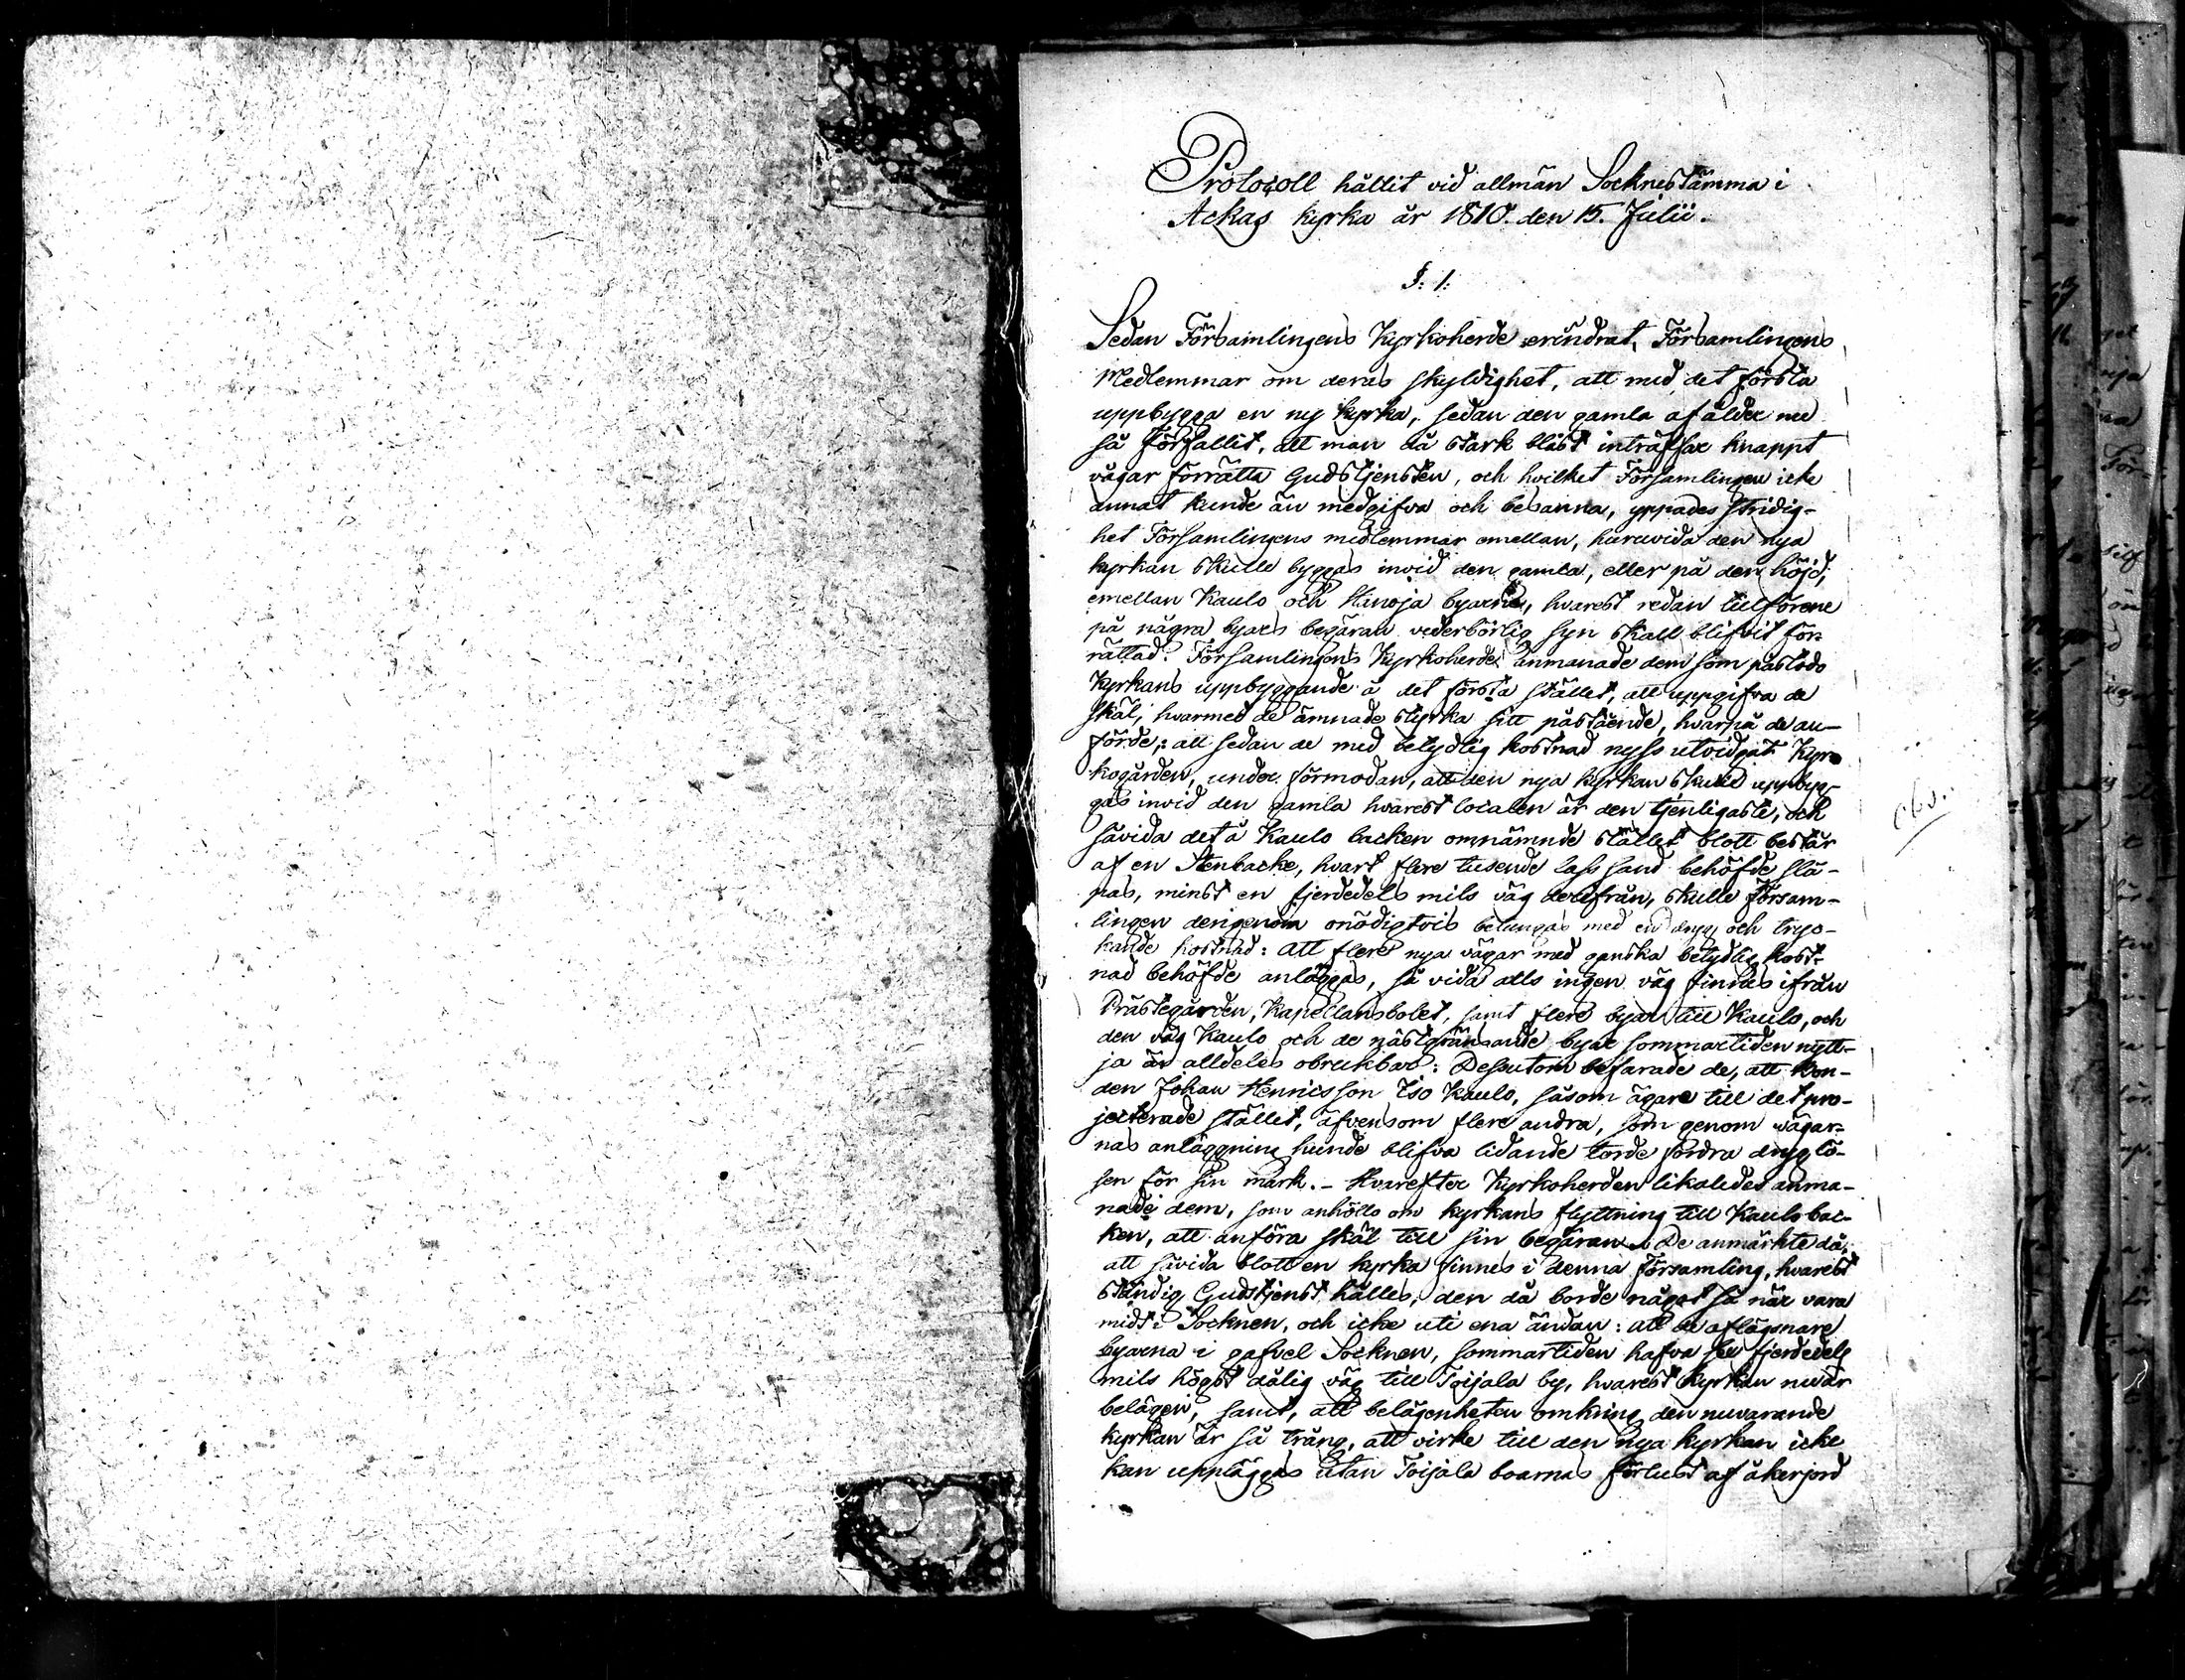 Protocoll hållit vid allmän Socknestämma i
Ackas kyrka år 1810. den 15. Julii.
§. 1.
Sedan Församlingens Kyrkoherde erindrat, Församlingens
Medlemmar om deras skyldighet, att med det första
uppbygga en ny kyrka, sedan den gamla af ålder nu
så Förfallit, att man då stark blåst inträffar knappt
vågar förrätta Gudstjensten, och hvilket Församlingen icke
annat kunde än medgifva och besanna, yppades stridig-
het Församlingens medlemmar emellan, huruvida den nya
kyrkan skulle byggas invid den gamla, eller på den höjd,
emellan Kaulo och Hanoja byarne, hvarest redan tillförene
på några byars begäran vederbörlig syn skall blifvit för-
rättad. Församlingens Kyrkoherde anmanade dem som påstodo
Kyrkans uppbyggande å det första stället, att uppgifva de
skäl, hvarmed de ämnade styrka sitt påstående, hvarpå de an-
förde: att sedan de med betydlig kostnad nyss utvidgat Kyr-
kogården, under förmodan, att den nya kyrkan skulle uppbyg-
gas invid den gamla hvarest localen är den tjenligaste, och
såvida det å Kaulo backen omnämnde stället blott består
af en Stenbacke, hvart flere tusende lass sand behöfde slä-
pas, minst en fjerdedels mils väg derifrån, skulle försam-
lingen derigenom onödigtvis betungas med en dryg och tryc-
kande kostnad: att flere nya vägar med ganska betydlig kost-
nad behöfde anläggas, så vida alls ingen väg finnes ifrån
Prästegården, Kapellansbolet, samt flere byar till Kaulo, och
den väg Kaulo och de nästgränsande byar sommartiden nytt-
ja är alldeles obrukbar: Dessutom befarade de, att Bon-
den Johan Henricsson Iso Kaulo, såsom ägare till det pro-
jecterade stället, äfvensom flere andra, som genom vägar-
nas anläggning kunde blifva lidande torde fordra dryg lö-
sen för sin mark. - Hvarefter Kyrkoherden likaledes anma-
nade dem, som anhöllo om kyrkans flyttning till Kaulo bac-
ken, att anföra skäl till sin begäran. De anmärkte då,
att såvida blott en kyrka finnes i denna Församling, hvarest
ständig Gudstjenst hålles, den då borde något så när vara
midt i Socknen, och icke uti ena ändan: att de aflägsnare
byarna i Socknen, sommartiden hafva fjerdedels
mils högst dålig väg till Toijala by, hvarest kyrkan nu är
belägen, samt, att belägenheten omkring den nuvarande
kyrkan är så trång, att virke till den nya kyrkan icke
kan uppläggas utan Toijala boarnas förlust af åkerjord